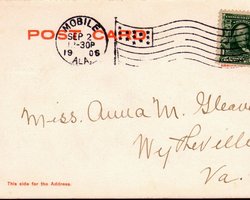 POST CARD.
MOBILE
SEP 2
12-30P
1906
ALA.
Miss. Anna M. Gleav
Wytheville
Va.
This side for the Address.